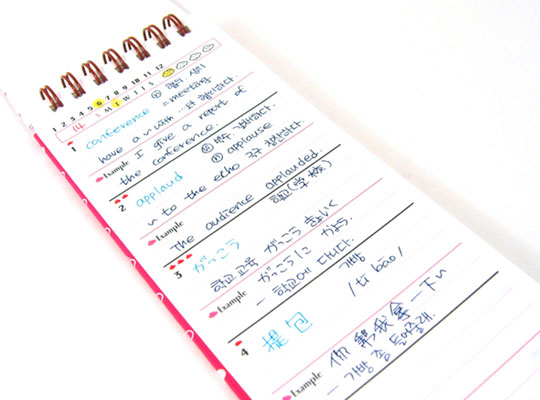 1 2 3 4 5 6 7 8 9 10 11 12
14 S M T W T F S
1 conference ⓝ 회의, 상의
= meeting.
have a ~ with ..와 협의하다.
Example I give a report of
the conference.
2 applaud ⓥ 박수 갈채하다.
ⓝ applause
~ to the echo 극구 칭찬하다.
Example The audience applauded.
3 がっこう 학교(学校)
학교교육 がっこうきょういく
Example がっこうに かよう.
- 학교에 다니다.
4 提包 가방 /ti bao/
Example 你帮我拿一下儿
- 가방 좀 들어줄래.